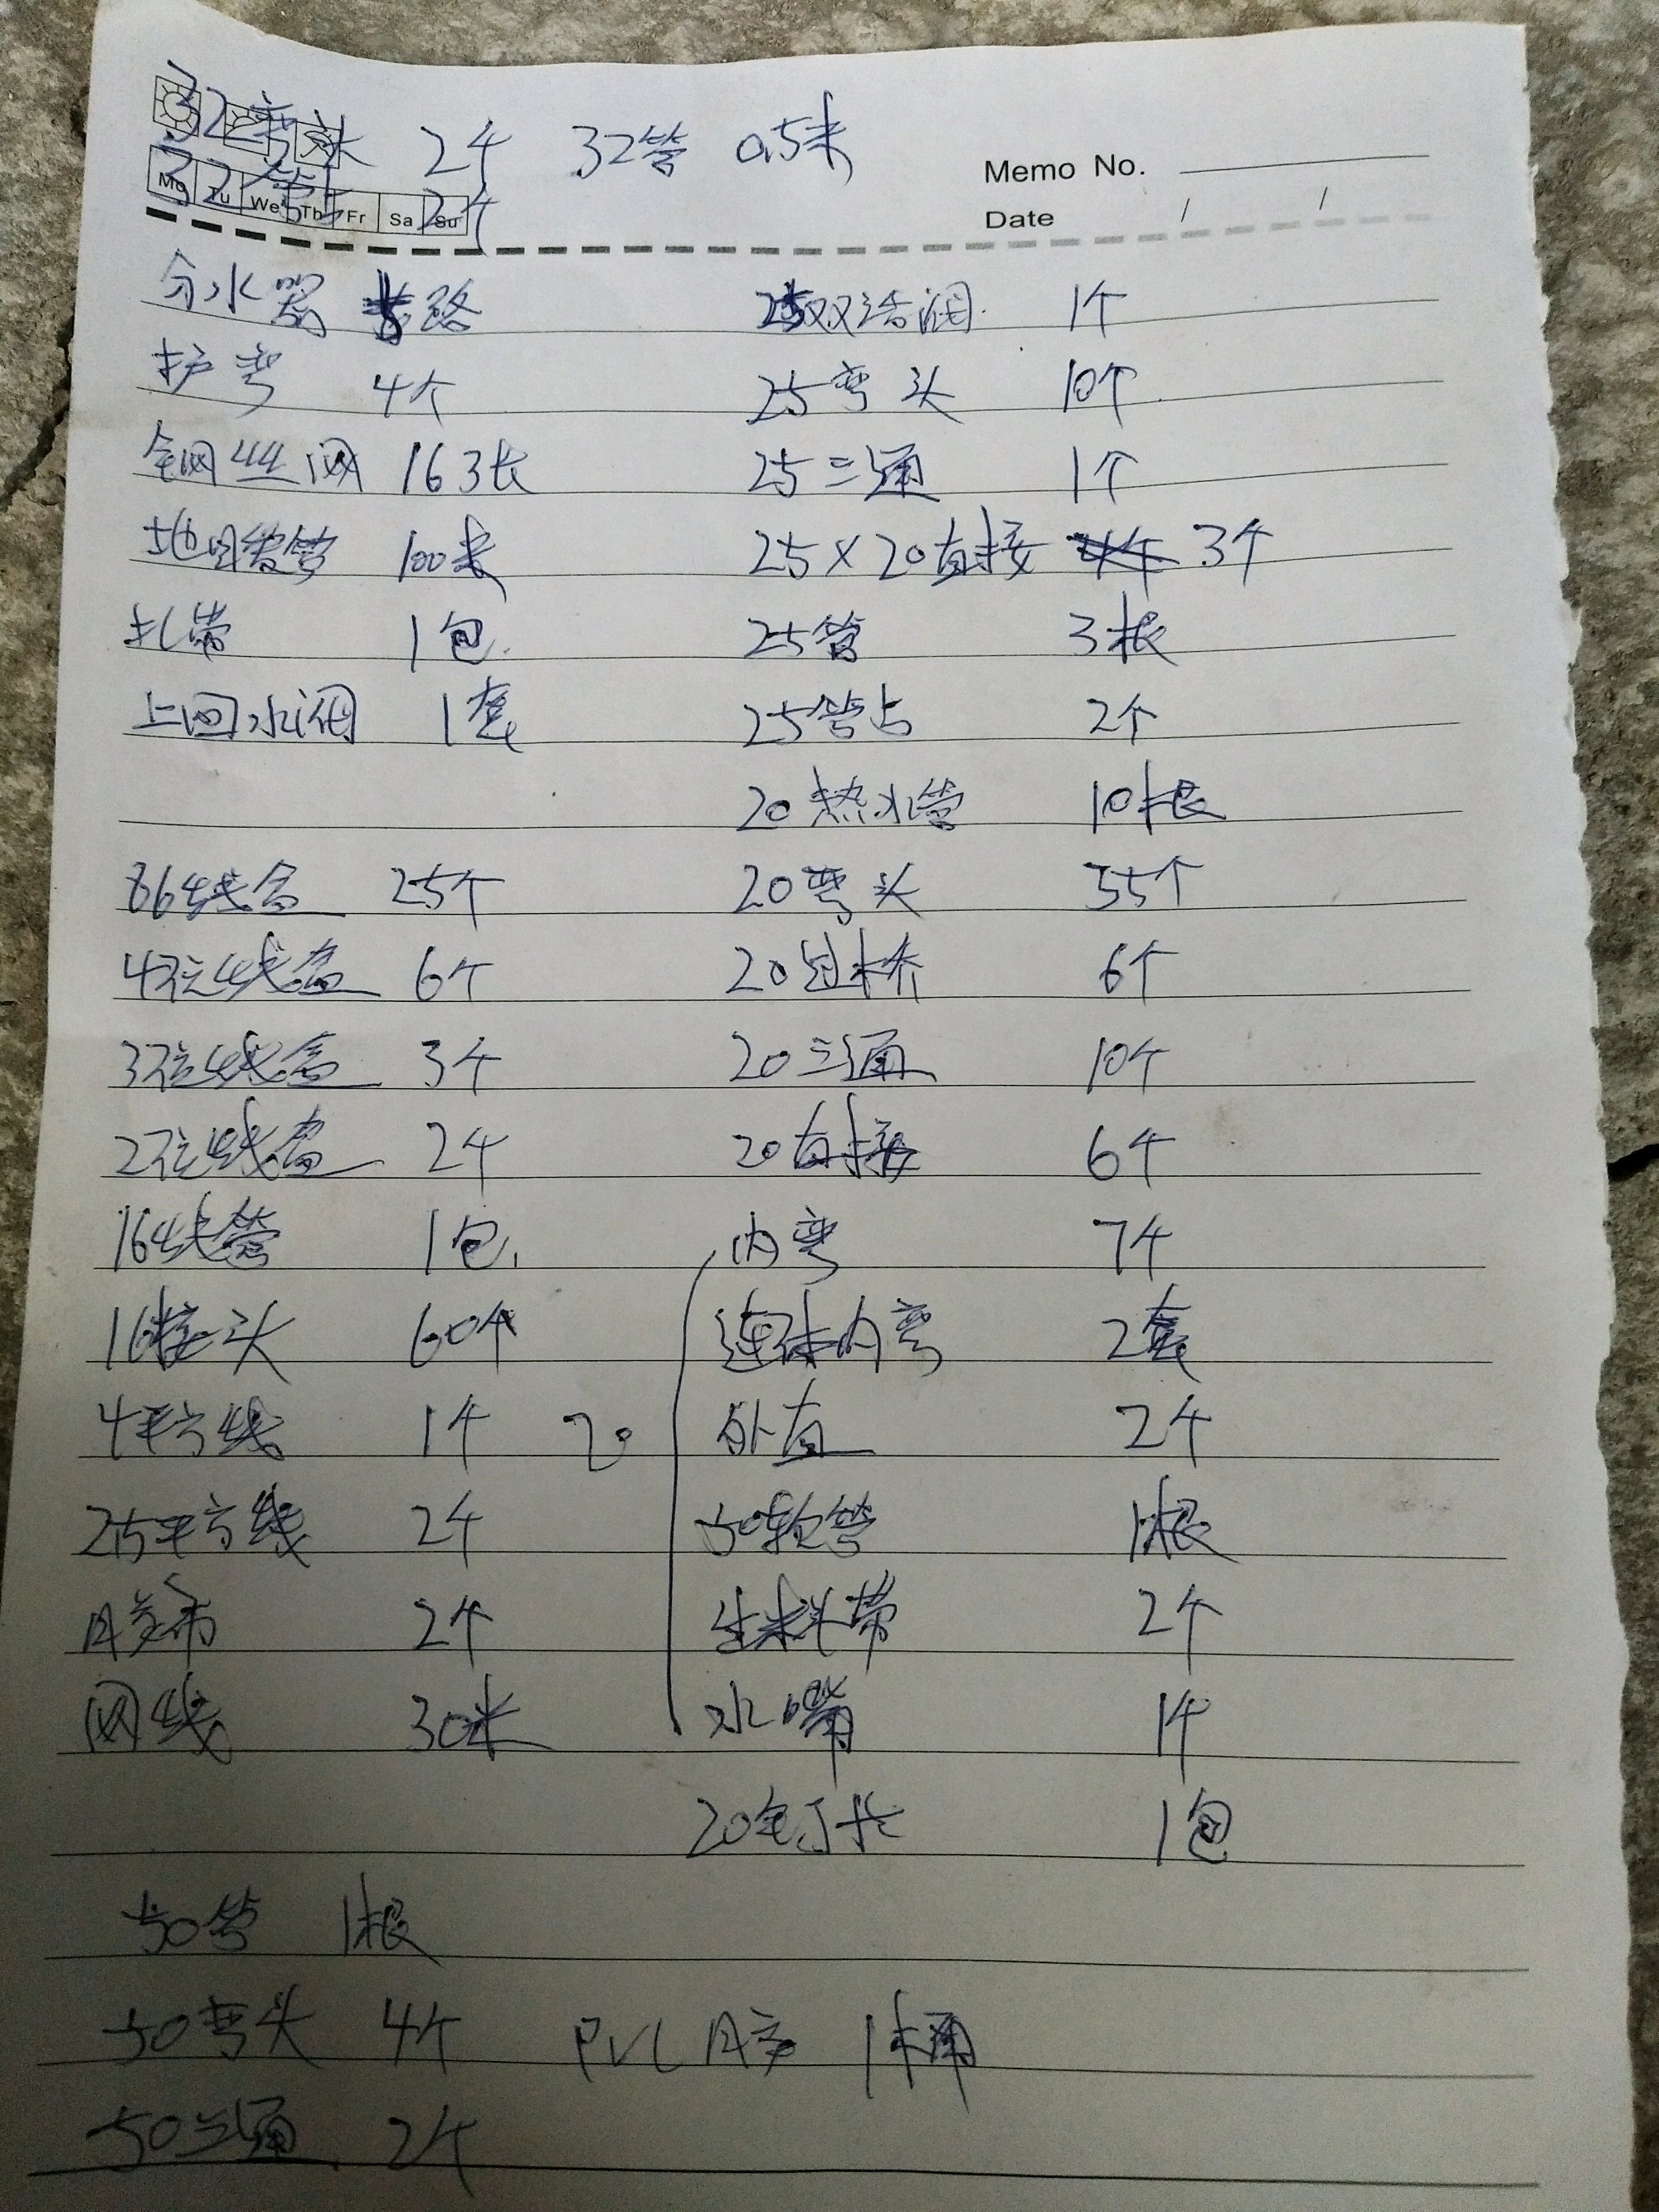 32弯头 2个 32管 0.5米
Memo No.
32管 2个
Mo Tu We Th Fr Sa Su
Date / /
分水器 路 25双活阀 1个
护弯 4个 25弯头 10个
钢丝网 16 3长 25三通 1个
地暖管 100米 25×20直接 3个
扎带 1包 25管 3根
上回水阀 1套 25管 2个
20热水管 10根
86线盒 25个 20弯头 55个
4位线盒 6个 20过桥 6个
3位线盒 3个 20三通 10个
2位线盒 2个 20直接 6个
16线管 1包 内弯 7个
16接头 60个 连体内弯 2套
4平方线 1个 20 外直 2个
2.5平方线 2个 50软管 1根
胶布 2个 生料带 2个
网线 30米 水嘴 1个
20钉卡 1包
50管 1根
50弯头 4个 PVC胶 1桶
50三通 2个